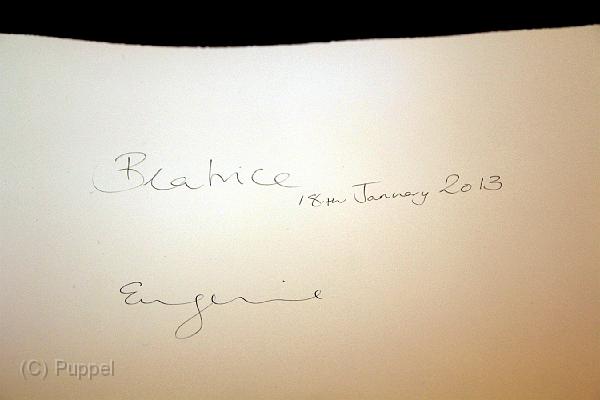 Beatrice
18th January 2013
Eugenie
(C) Puppel